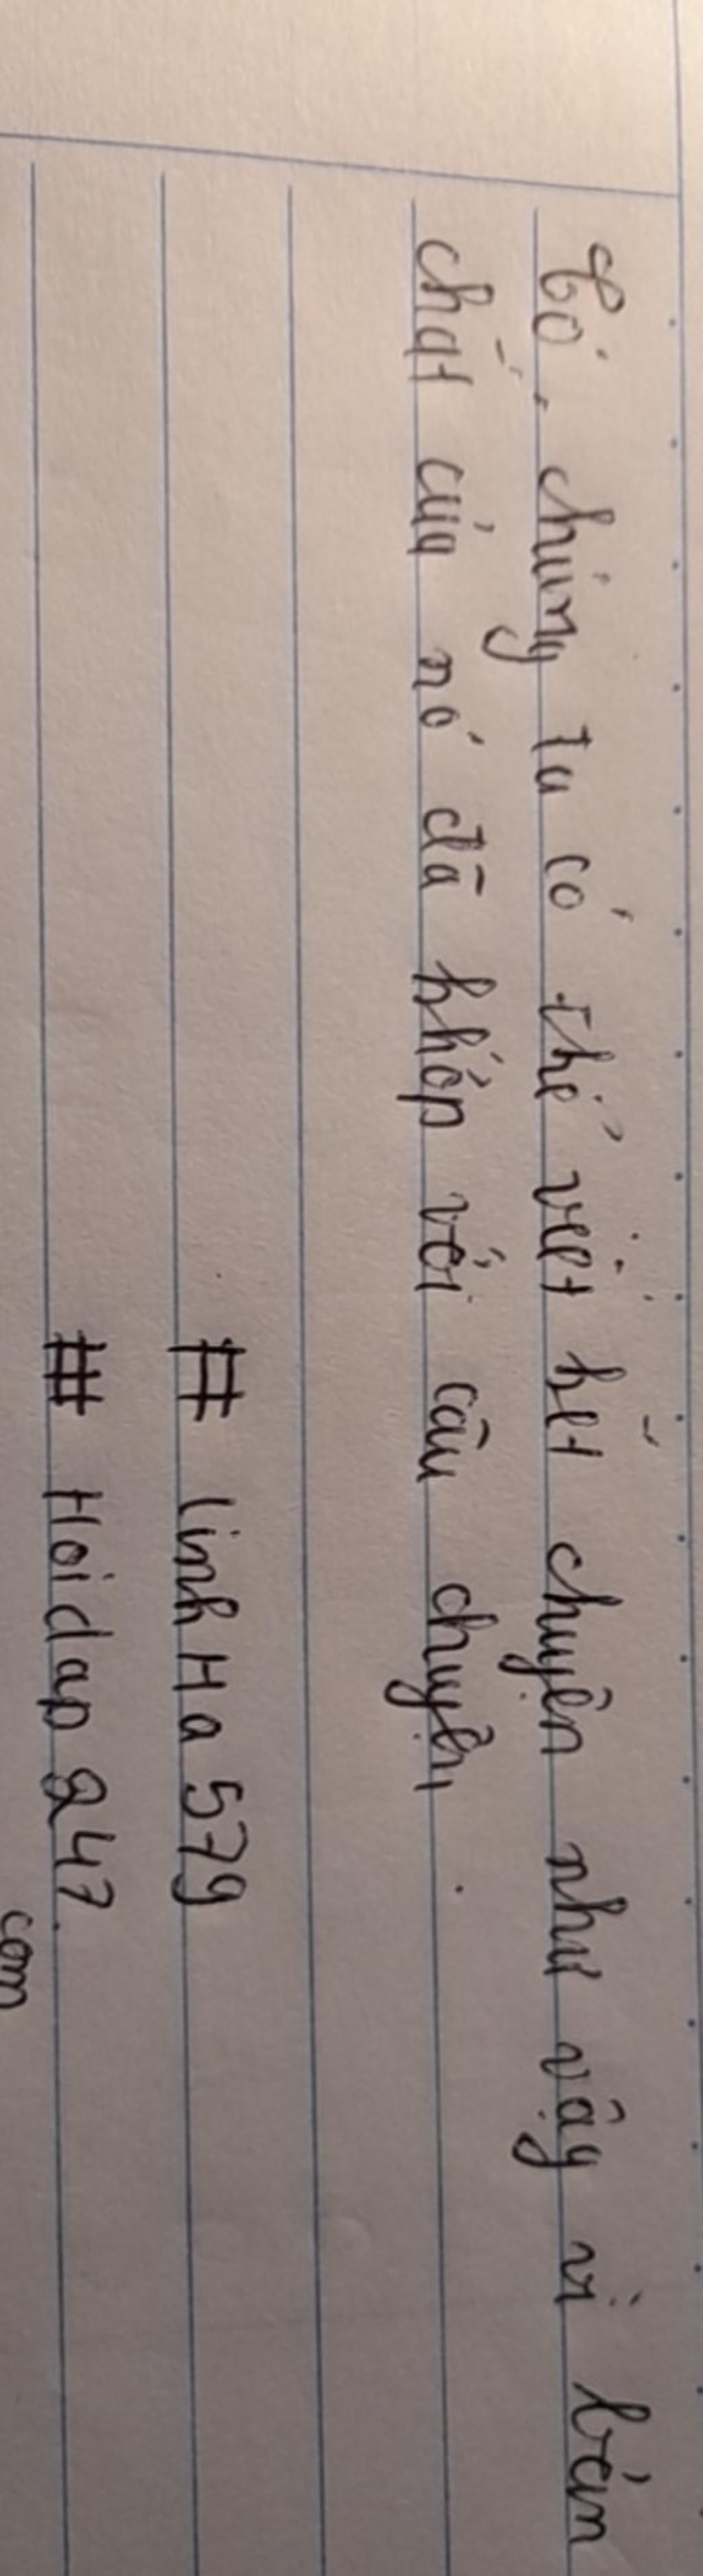 Có, chúng ta có thể viết hết chuyện như vậy vì bản
chất của nó đã khớp với câu chuyện.
# linh Ha 579
# Hoidap 247.
com